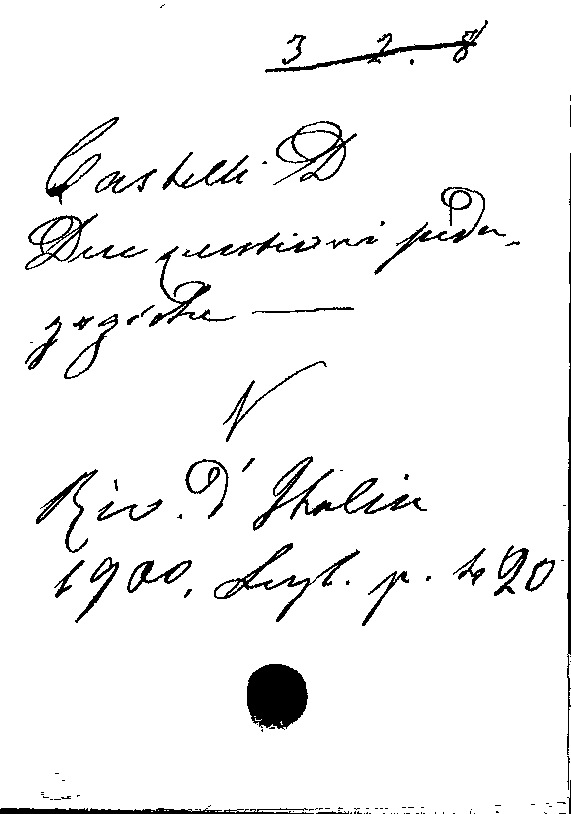 3 2.8
Castelli D
Due questioni peda-
gogiche —
V
Riv. d'Italia
1900, Lugl. p. 420